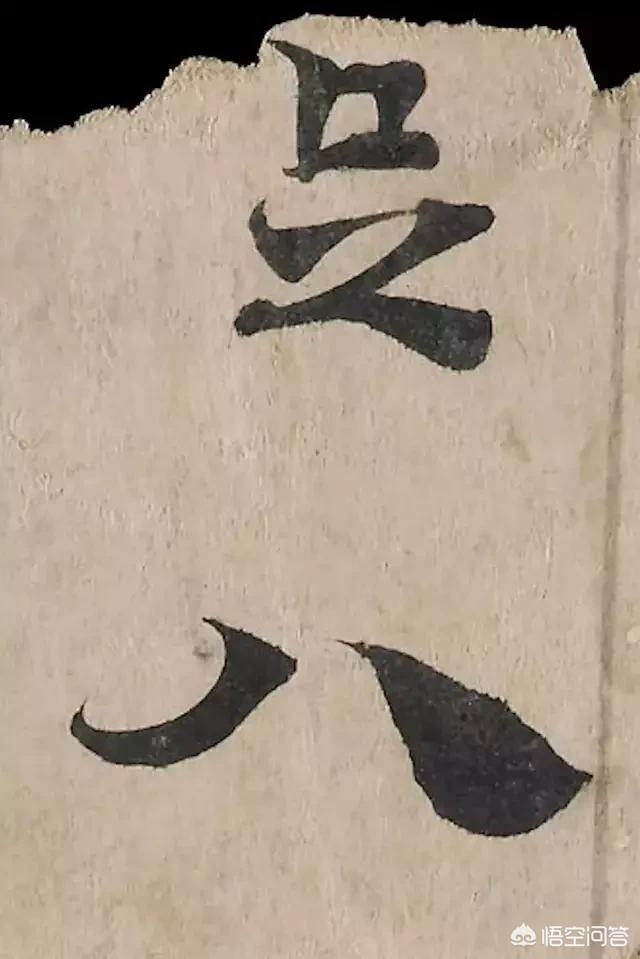 八
悟空问答